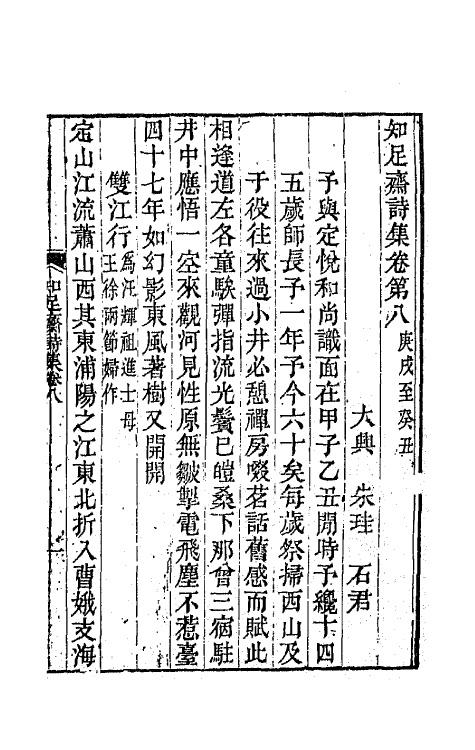 知足齋詩集卷第八 庚戌至癸丑
大興 朱珪 石君
予與定悅和尚識面在甲子乙丑閒時予纔十四
五歲師長予一年予今六十矣每歲祭掃西山及
于役往來過小井必憩禪房啜茗話舊感而賦此
相逢道左各童騃彈指流光鬢已皚桑下那曾三宿駐
井中應悟一空來觀河見性原無皺掣電飛塵不惹臺
四十七年如幻影東風著樹又開開
雙江行 爲汪輝祖進士母王徐兩節婦作
定山江流蕭山西其東浦陽之江東北折入曹娥支海
知足齋詩集卷八
一